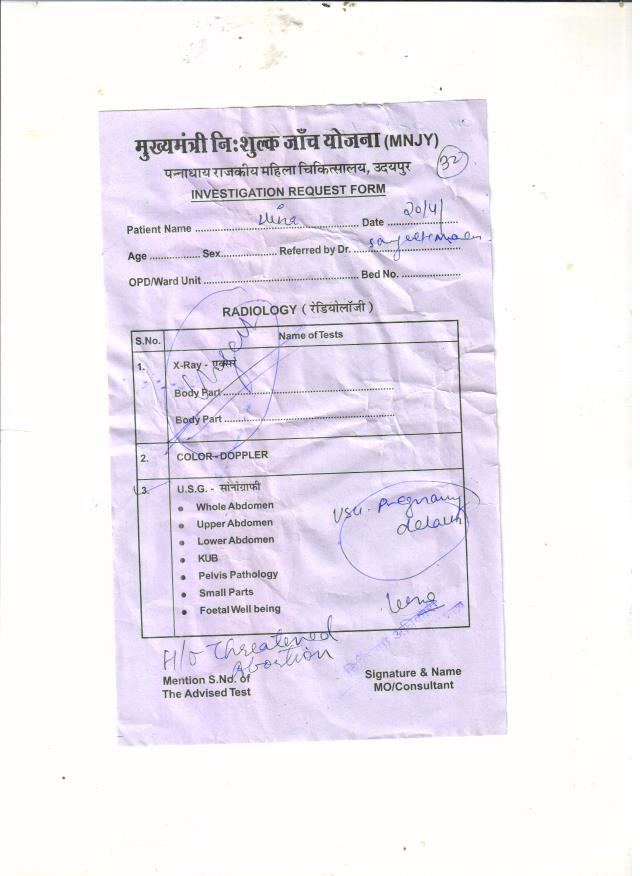 मुख्यमंत्री नि:शुल्क जाँच योजना (MNJY)
पन्नाधाय राजकीय महिला चिकित्सालय, उदयपुर
32
INVESTIGATION REQUEST FORM
Patient Name ............ Date 20/4/
Age ............ Sex............ Referred by Dr. ............
OPD/Ward Unit ............ Bed No. ............
RADIOLOGY ( रेडियोलॉजी )
S.No. Name of Tests
1. X-Ray - एक्सरे
Body Part ............
Body Part ............
2. COLOR - DOPPLER
3. U.S.G. - सोनोग्राफी
• Whole Abdomen
USG. Pregnancy
• Upper Abdomen
• Lower Abdomen
• KUB
• Pelvis Pathology
• Small Parts
• Foetal Well being
H/O Threatened
Abortion
Mention S.No. of
The Advised Test
Signature & Name
MO/Consultant